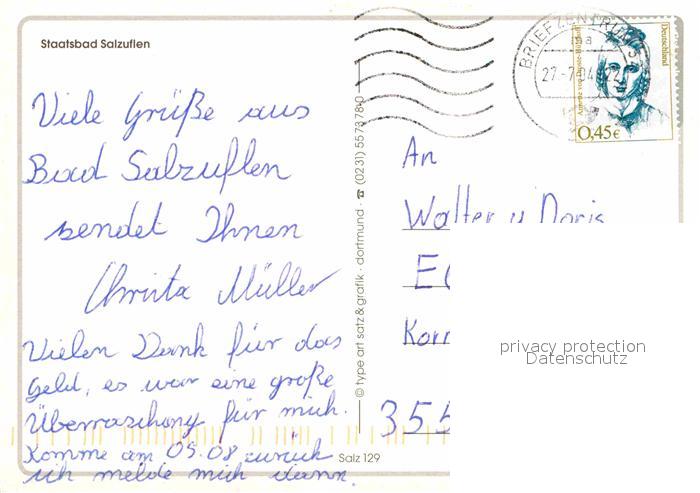 Staatsbad Salzuflen
Viele Grüße aus
Bad Salzuflen
sendet Ihnen
Christa Müller
Vielen Dank für das
Geld, es war eine große
Überraschung für mich.
Komme am 05.08 zurück
ich melde mich dann.
© type art satz & grafik · dortmund · ☎ (0231) 557378-0
Salz 129
BRIEFZENTRUM
Deutschland
0,45€
An
Walter u Doris
355
privacy protection
Datenschutz